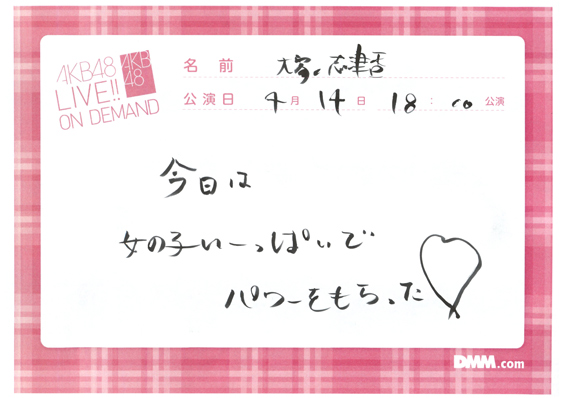 AKB48
LIVE!!
ON DEMAND
AKB
48
名前 大家志津香
公演日 4月14日 18:00公演
今日は
女の子いーっぱいで
パワーをもらった♡
DMM.com